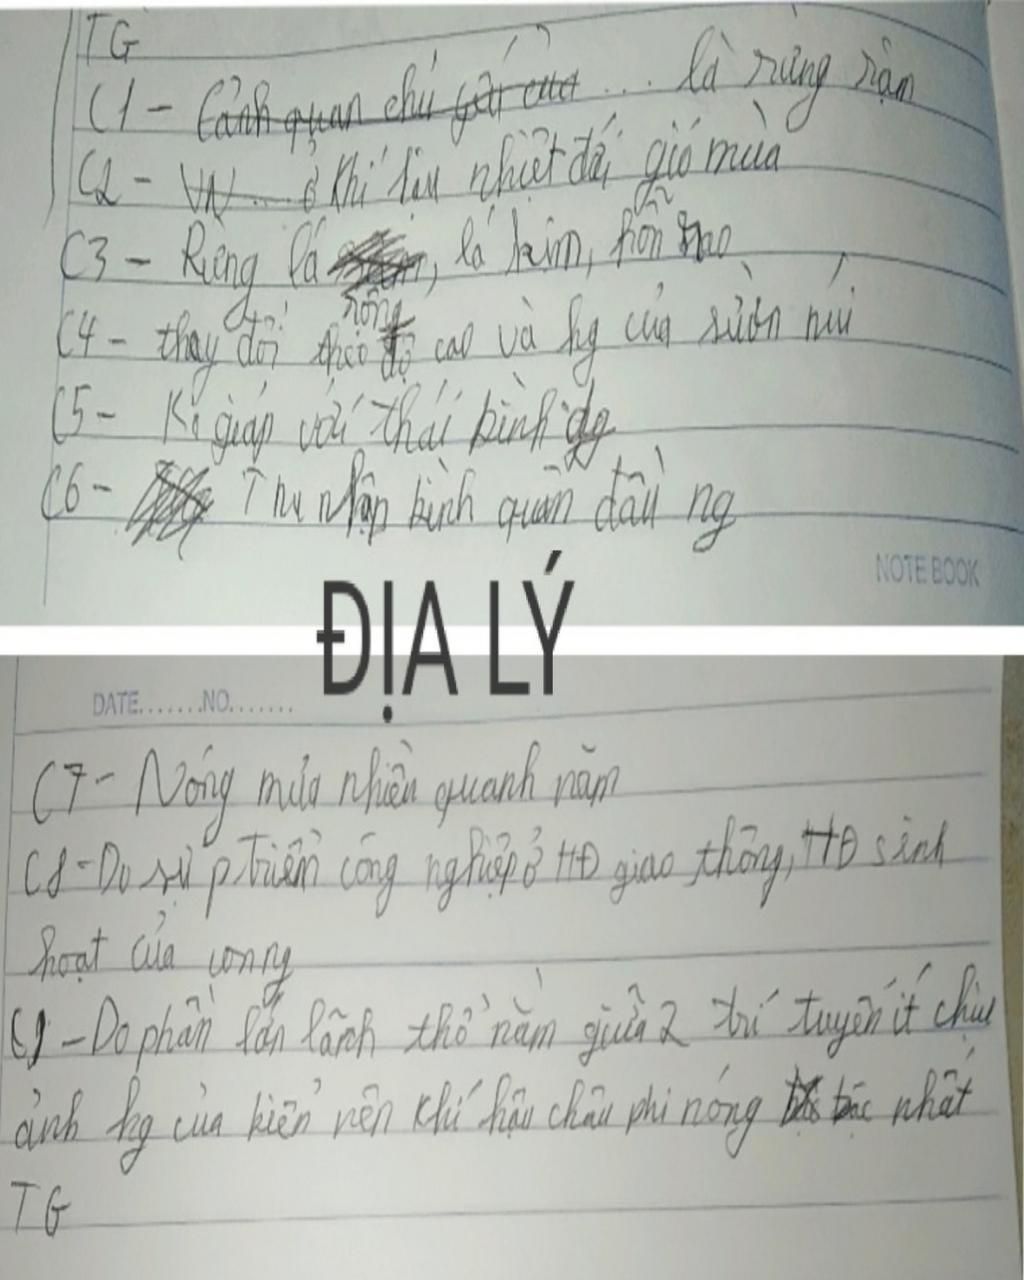 TG
C1 - Cảnh quan chủ ... là rừng rậm
C2 - VN ... ở Khí hậu nhiệt đới gió mùa
C3 - Rừng lá rộng, lá kim, hỗn giao
C4 - thay đổi theo độ cao và hg của sườn núi
C5 - K giáp với thái bình dg
C6 - Thu nhập bình quân đầu ng
NOTE BOOK
ĐỊA LÝ
DATE.......NO.......
C7 - Nóng mưa nhiều quanh năm
C8 - Do sự ptriển công nghiệp ở HĐ giao thông, HĐ sinh
hoạt của conng
C9 - Do phần lớn lãnh thổ nằm giữa 2 trí tuyến ít chịu
ảnh hg của biển nên khí hậu châu phi nóng bậc nhất
TG